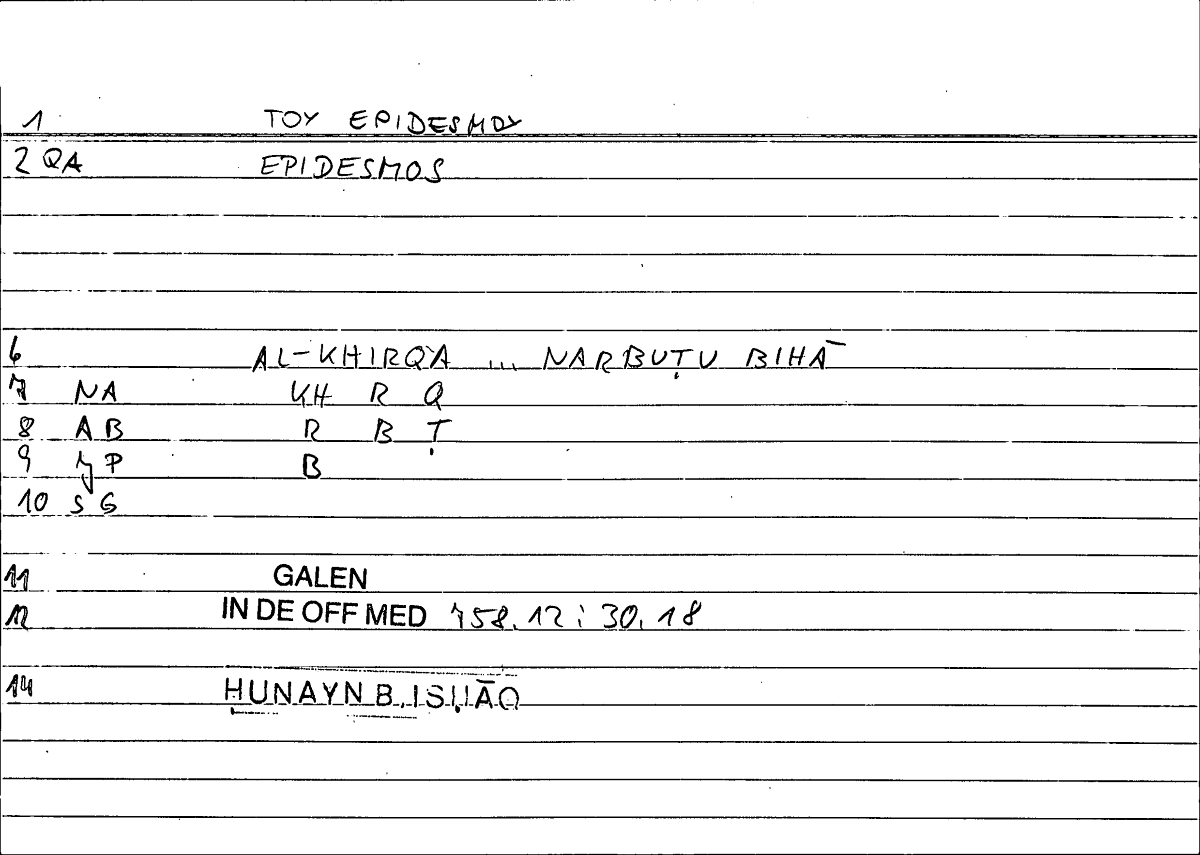 1 TOY EPIDESMOY
2 QA EPIDESMOS
6 AL-KHIRQA ... NARBUṬU BIHĀ
7 NA KH R Q
8 AB R B Ṭ
9 7P B
10 SG
11 GALEN
12 IN DE OFF MED 758.12 : 30.18
14 ḤUNAYN B. ISḤĀQ